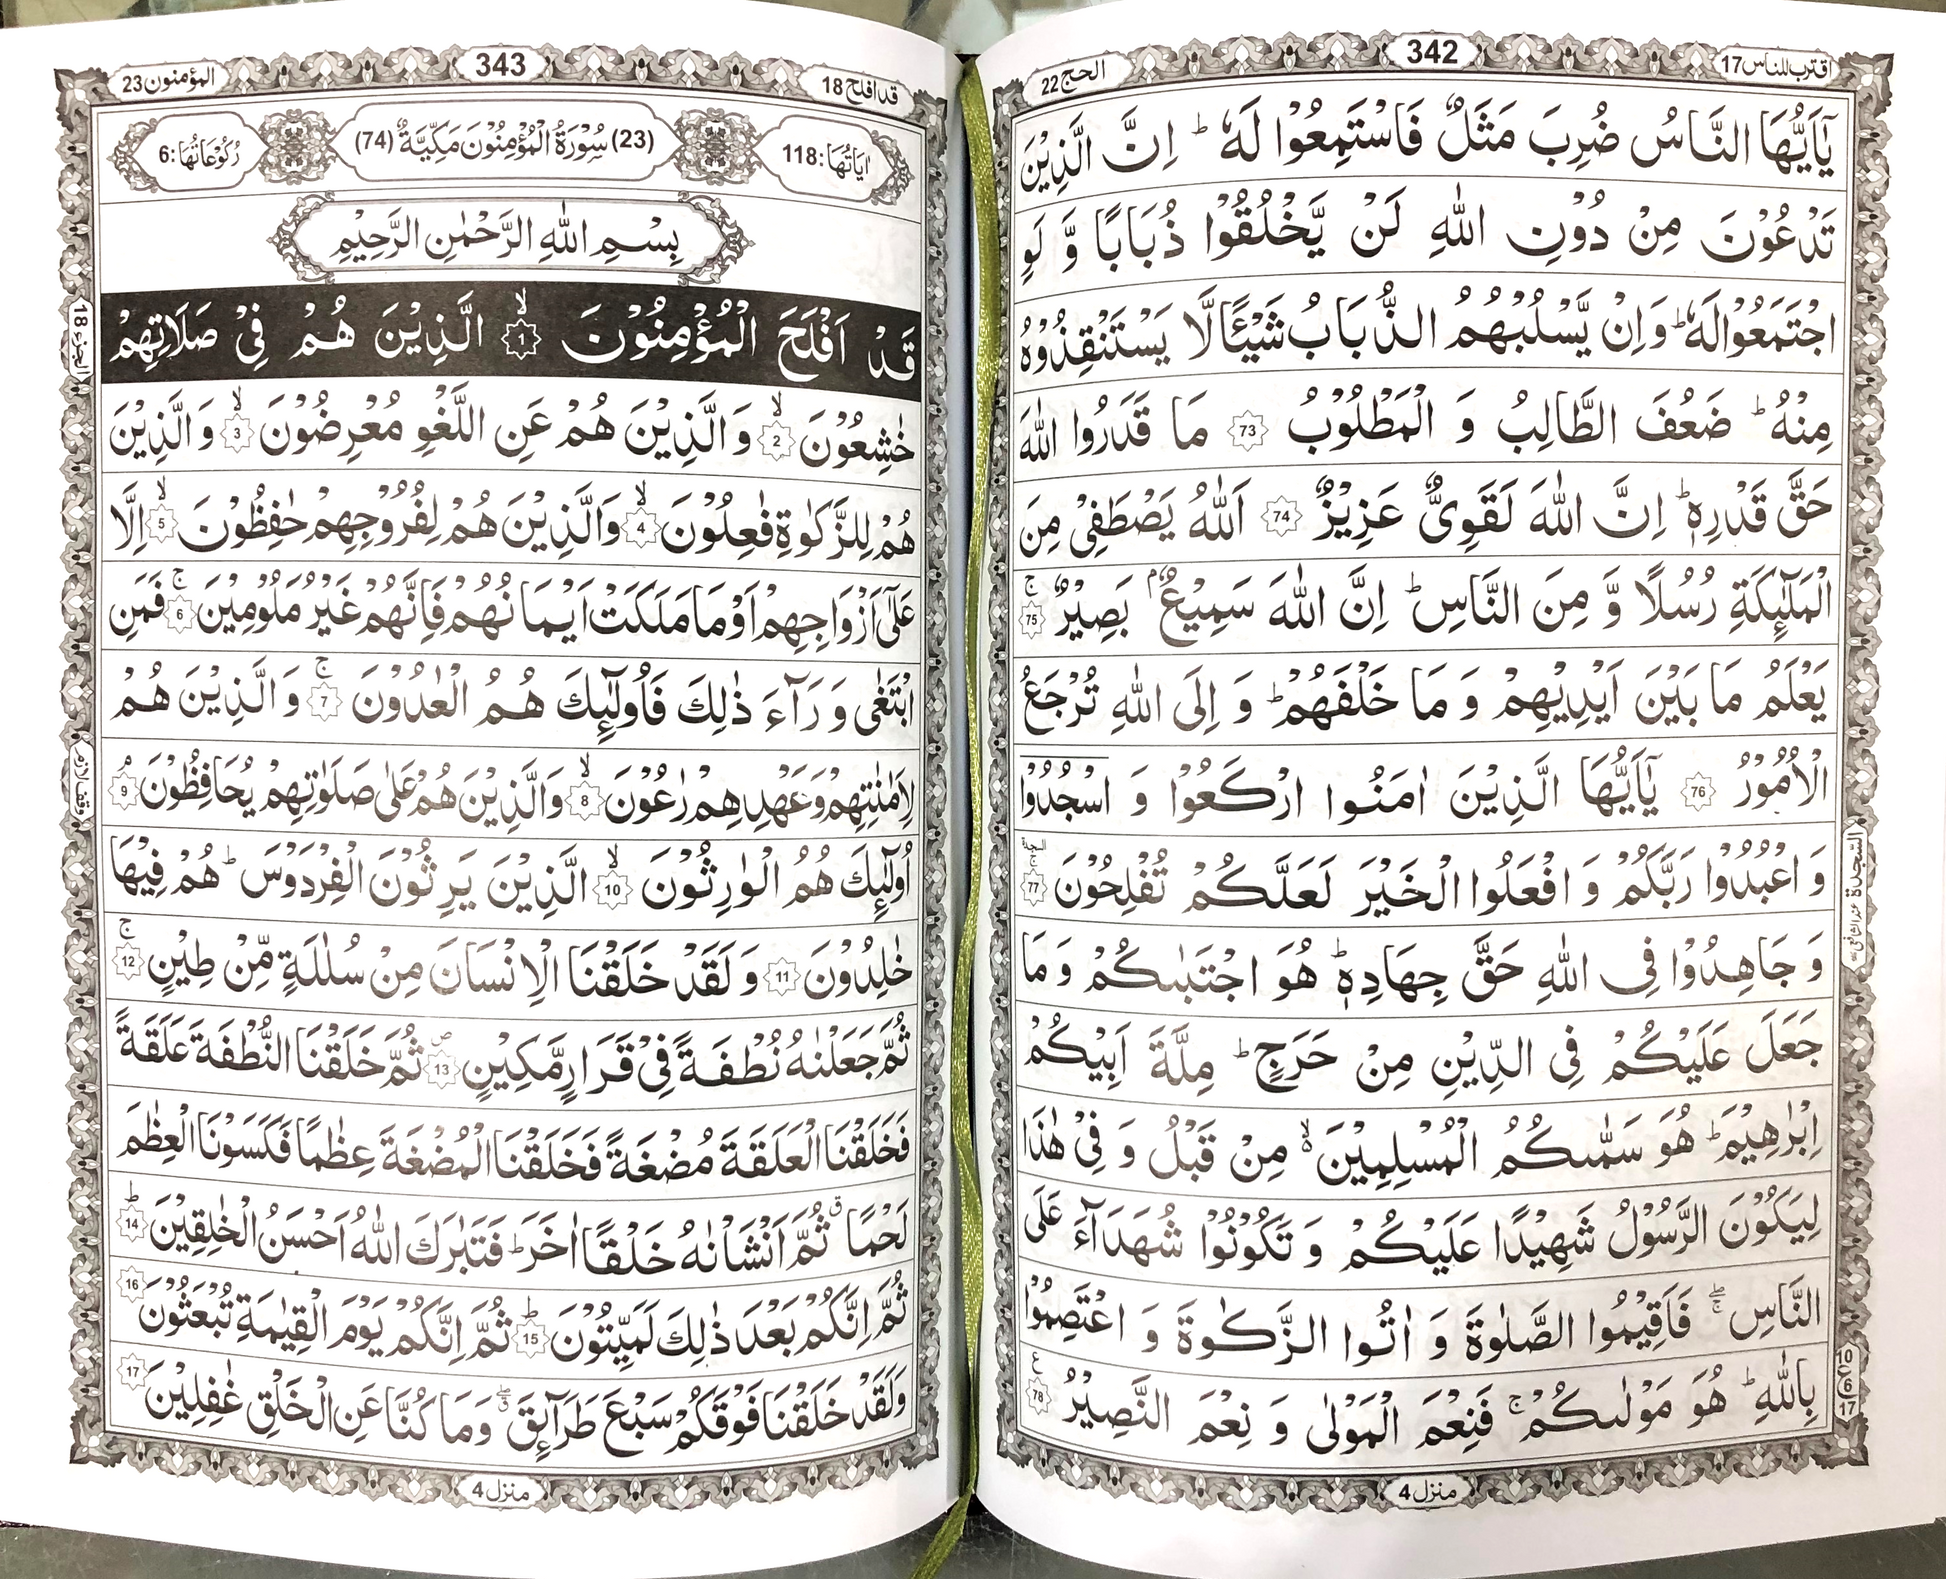 اقترب للناس 17
342
الحج 22
يٰۤاَيُّهَا النَّاسُ ضُرِبَ مَثَلٌ فَاسْتَمِعُوْا لَهٗ ؕ اِنَّ الَّذِيْنَ
تَدْعُوْنَ مِنْ دُوْنِ اللّٰهِ لَنْ يَّخْلُقُوْا ذُبَابًا وَّ لَوِ
اجْتَمَعُوْا لَهٗ ؕ وَاِنْ يَّسْلُبْهُمُ الذُّبَابُ شَيْـًٔا لَّا يَسْتَنْقِذُوْهُ
مِنْهُ ؕ ضَعُفَ الطَّالِبُ وَ الْمَطْلُوْبُ 73 مَا قَدَرُوا اللّٰهَ
حَقَّ قَدْرِهٖ ؕ اِنَّ اللّٰهَ لَقَوِىٌّ عَزِيْزٌ 74 اَللّٰهُ يَصْطَفِىْ مِنَ
الْمَلٰٓئِكَةِ رُسُلًا وَّ مِنَ النَّاسِ ؕ اِنَّ اللّٰهَ سَمِيْعٌۢ بَصِيْرٌ ۚ 75
يَعْلَمُ مَا بَيْنَ اَيْدِيْهِمْ وَ مَا خَلْفَهُمْ ؕ وَ اِلَى اللّٰهِ تُرْجَعُ
الْاُمُوْرُ 76 يٰۤاَيُّهَا الَّذِيْنَ اٰمَنُوا ارْكَعُوْا وَ اسْجُدُوْا
وَ اعْبُدُوْا رَبَّكُمْ وَ افْعَلُوا الْخَيْرَ لَعَلَّكُمْ تُفْلِحُوْنَ ۚ 77
السجدة
السّجدة عند الشافعي
وَ جَاهِدُوْا فِى اللّٰهِ حَقَّ جِهَادِهٖ ؕ هُوَ اجْتَبٰىكُمْ وَ مَا
جَعَلَ عَلَيْكُمْ فِى الدِّيْنِ مِنْ حَرَجٍ ؕ مِلَّةَ اَبِيْكُمْ
اِبْرٰهِيْمَ ؕ هُوَ سَمّٰىكُمُ الْمُسْلِمِيْنَ ۙ مِنْ قَبْلُ وَ فِىْ هٰذَا
لِيَكُوْنَ الرَّسُوْلُ شَهِيْدًا عَلَيْكُمْ وَ تَكُوْنُوْا شُهَدَآءَ عَلَى
النَّاسِ ۖۚ فَاَقِيْمُوا الصَّلٰوةَ وَ اٰتُوا الزَّكٰوةَ وَ اعْتَصِمُوْا
بِاللّٰهِ ؕ هُوَ مَوْلٰىكُمْ ۚ فَنِعْمَ الْمَوْلٰى وَ نِعْمَ النَّصِيْرُ ع 78
10
17
منزل 4
قد افلح 18
343
المؤمنون 23
اٰيَاتُهَا: 118
(23) سُوْرَةُ الْمُؤْمِنُوْنَ مَكِّيَّةٌ (74)
رُكُوْعَاتُهَا: 6
بِسْمِ اللّٰهِ الرَّحْمٰنِ الرَّحِيْمِ
الجزء 18
قَدْ اَفْلَحَ الْمُؤْمِنُوْنَ ۙ 1 الَّذِيْنَ هُمْ فِىْ صَلَاتِهِمْ
خٰشِعُوْنَ ۙ 2 وَ الَّذِيْنَ هُمْ عَنِ اللَّغْوِ مُعْرِضُوْنَ ۙ 3 وَ الَّذِيْنَ
هُمْ لِلزَّكٰوةِ فٰعِلُوْنَ ۙ 4 وَالَّذِيْنَ هُمْ لِفُرُوْجِهِمْ حٰفِظُوْنَ ۙ 5 اِلَّا
عَلٰٓى اَزْوَاجِهِمْ اَوْ مَا مَلَكَتْ اَيْمَانُهُمْ فَاِنَّهُمْ غَيْرُ مَلُوْمِيْنَ ۚ 6 فَمَنِ
ابْتَغٰى وَ رَآءَ ذٰلِكَ فَاُولٰٓئِكَ هُمُ الْعٰدُوْنَ ۚ 7 وَ الَّذِيْنَ هُمْ
لِاَمٰنٰتِهِمْ وَ عَهْدِهِمْ رٰعُوْنَ ۙ 8 وَالَّذِيْنَ هُمْ عَلٰى صَلَوٰتِهِمْ يُحَافِظُوْنَ ۘ 9
وقف لازم
اُولٰٓئِكَ هُمُ الْوٰرِثُوْنَ ۙ 10 الَّذِيْنَ يَرِثُوْنَ الْفِرْدَوْسَ ؕ هُمْ فِيْهَا
خٰلِدُوْنَ 11 وَ لَقَدْ خَلَقْنَا الْاِنْسَانَ مِنْ سُلٰلَةٍ مِّنْ طِيْنٍ ۚ 12
ثُمَّ جَعَلْنٰهُ نُطْفَةً فِىْ قَرَارٍ مَّكِيْنٍ ۪ 13 ثُمَّ خَلَقْنَا النُّطْفَةَ عَلَقَةً
فَخَلَقْنَا الْعَلَقَةَ مُضْغَةً فَخَلَقْنَا الْمُضْغَةَ عِظٰمًا فَكَسَوْنَا الْعِظٰمَ
لَحْمًا ق ثُمَّ اَنْشَاْنٰهُ خَلْقًا اٰخَرَ ؕ فَتَبٰرَكَ اللّٰهُ اَحْسَنُ الْخٰلِقِيْنَ ؕ 14
ثُمَّ اِنَّكُمْ بَعْدَ ذٰلِكَ لَمَيِّتُوْنَ ؕ 15 ثُمَّ اِنَّكُمْ يَوْمَ الْقِيٰمَةِ تُبْعَثُوْنَ 16
وَلَقَدْ خَلَقْنَا فَوْقَكُمْ سَبْعَ طَرَآئِقَ ۖ ق وَمَا كُنَّا عَنِ الْخَلْقِ غٰفِلِيْنَ 17
منزل 4